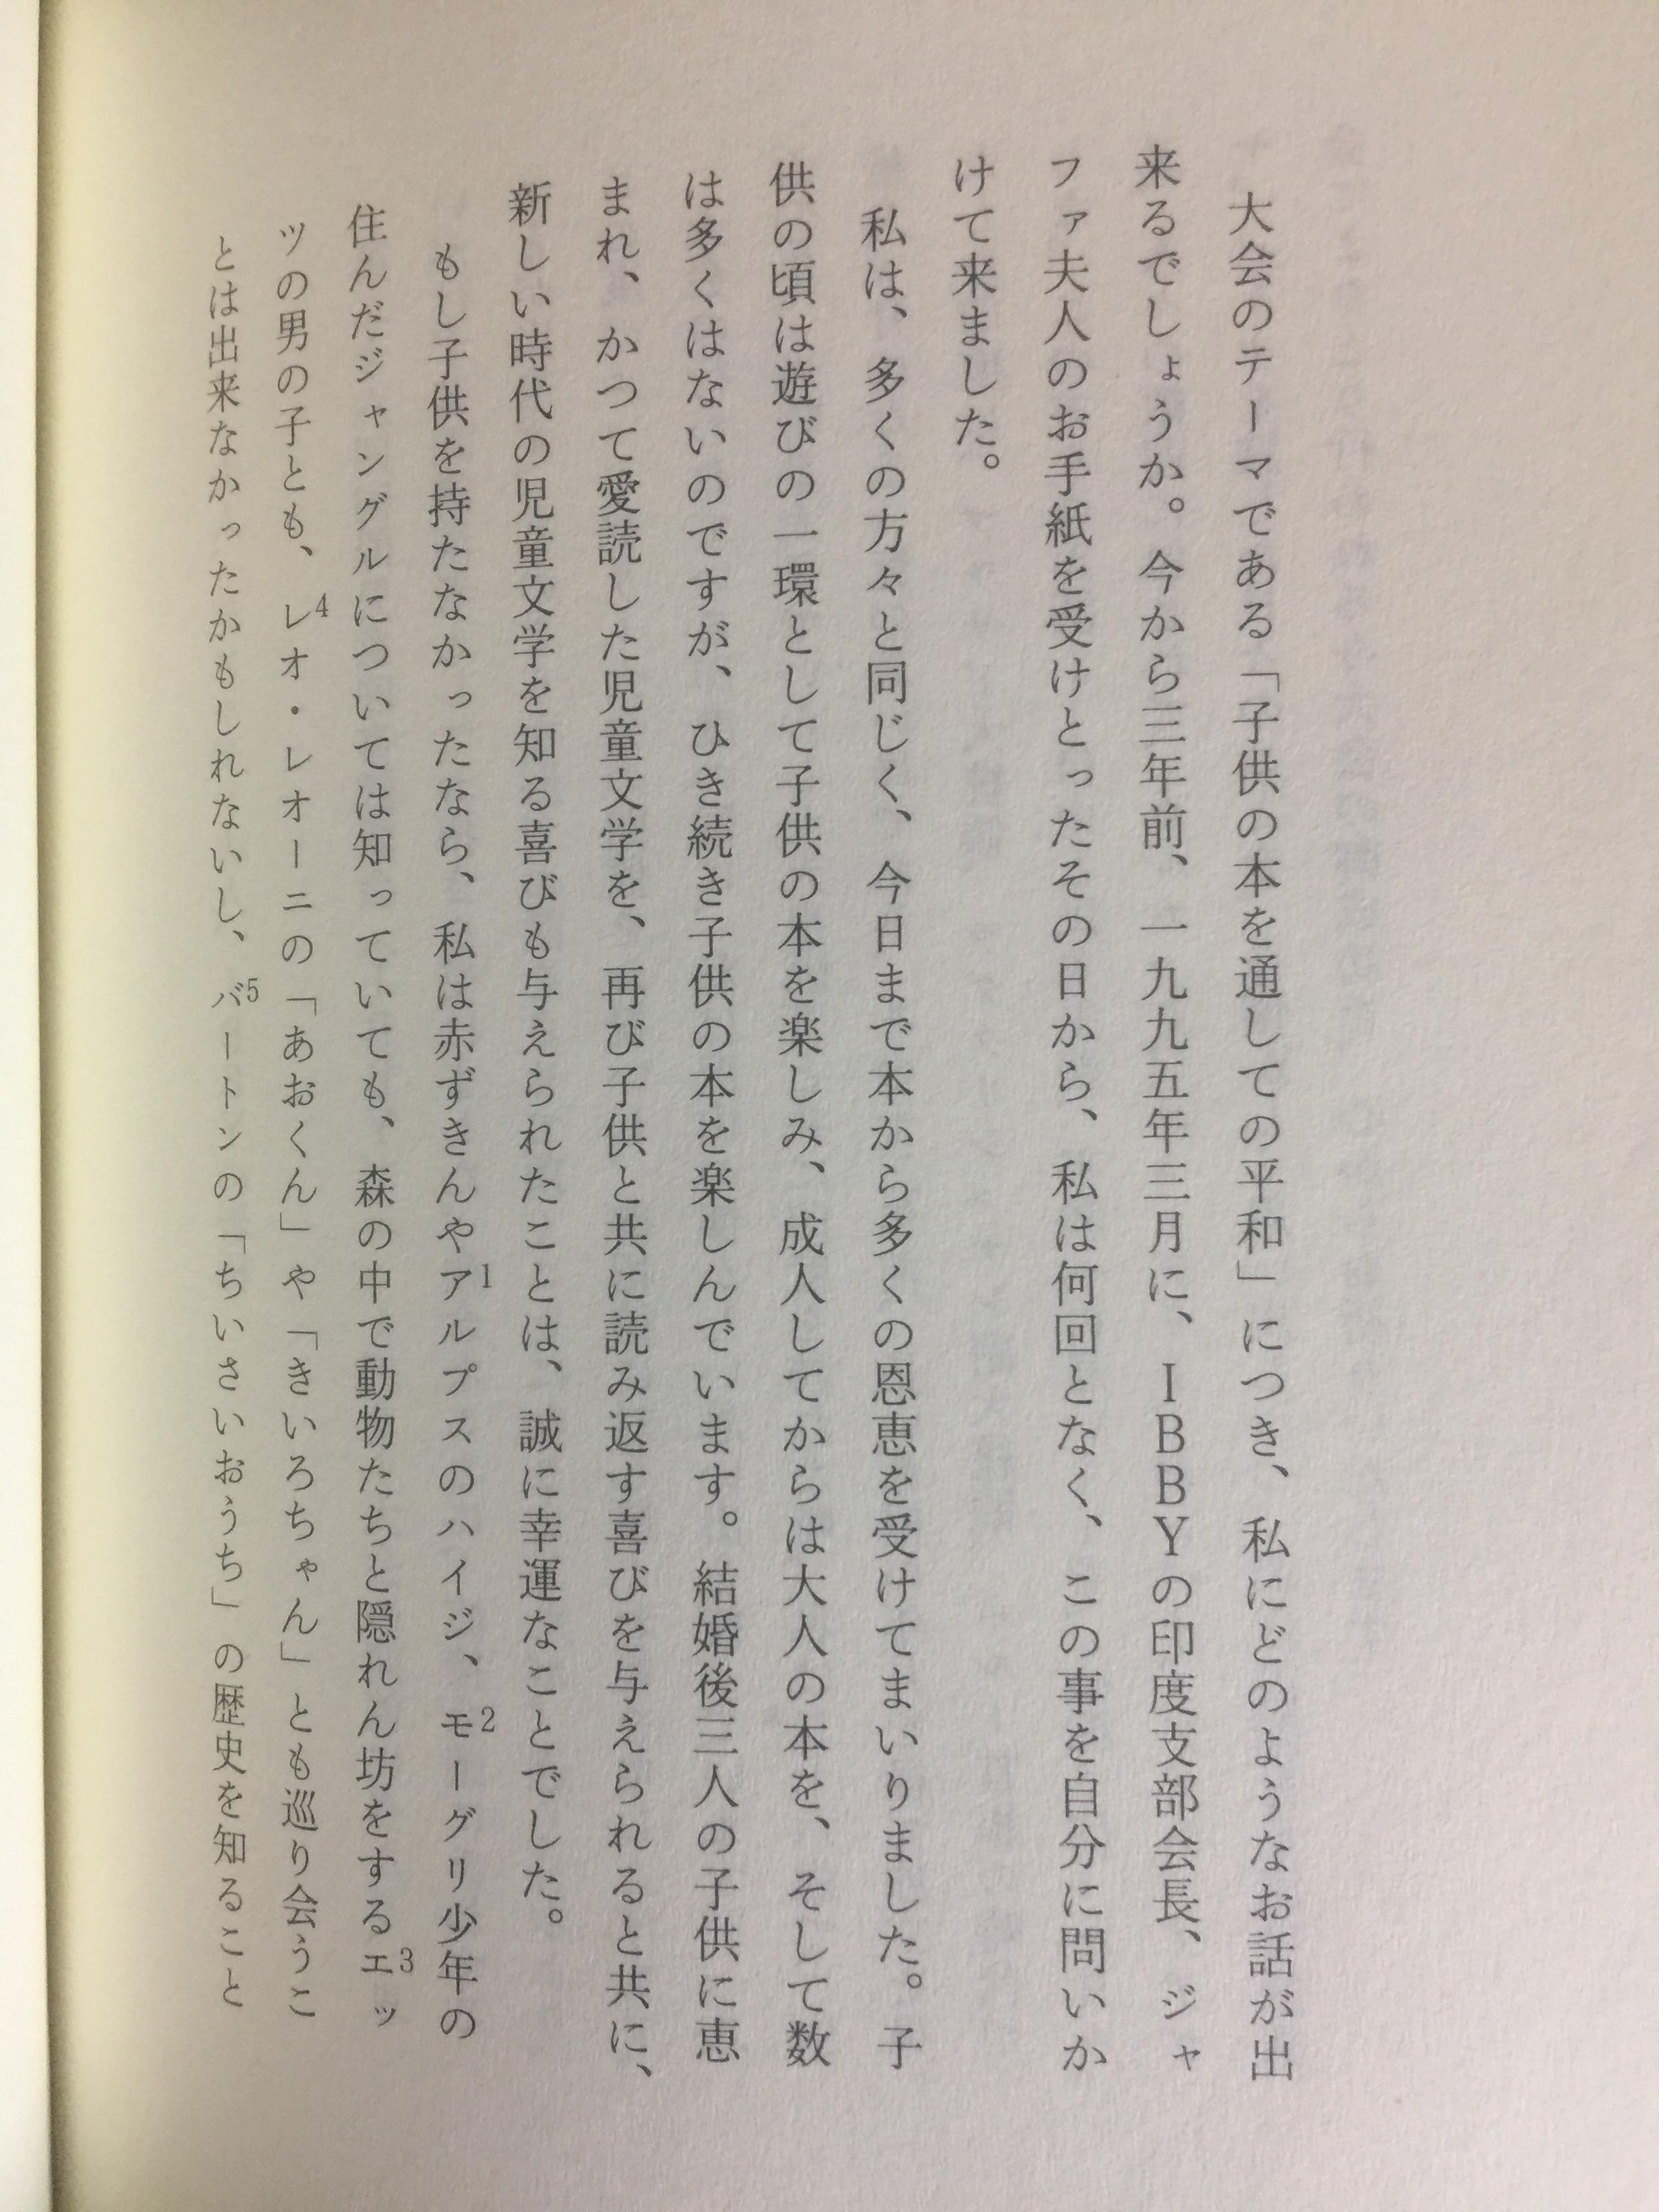 大会のテーマである「子供の本を通しての平和」につき、私にどのようなお話が出
来るでしょうか。今から三年前、一九九五年三月に、ＩＢＢＹの印度支部会長、ジャ
ファ夫人のお手紙を受けとったその日から、私は何回となく、この事を自分に問いか
けて来ました。
私は、多くの方々と同じく、今日まで本から多くの恩恵を受けてまいりました。子
供の頃は遊びの一環として子供の本を楽しみ、成人してからは大人の本を、そして数
は多くはないのですが、ひき続き子供の本を楽しんでいます。結婚後三人の子供に恵
まれ、かつて愛読した児童文学を、再び子供と共に読み返す喜びを与えられると共に、
新しい時代の児童文学を知る喜びも与えられたことは、誠に幸運なことでした。
もし子供を持たなかったなら、私は赤ずきんやア1ルプスのハイジ、モ2ーグリ少年の
住んだジャングルについては知っていても、森の中で動物たちと隠れん坊をするエ3ッ
ツの男の子とも、レ4オ・レオーニの「あおくん」や「きいろちゃん」とも巡り会うこ
とは出来なかったかもしれないし、バ5ートンの「ちいさいおうち」の歴史を知ること